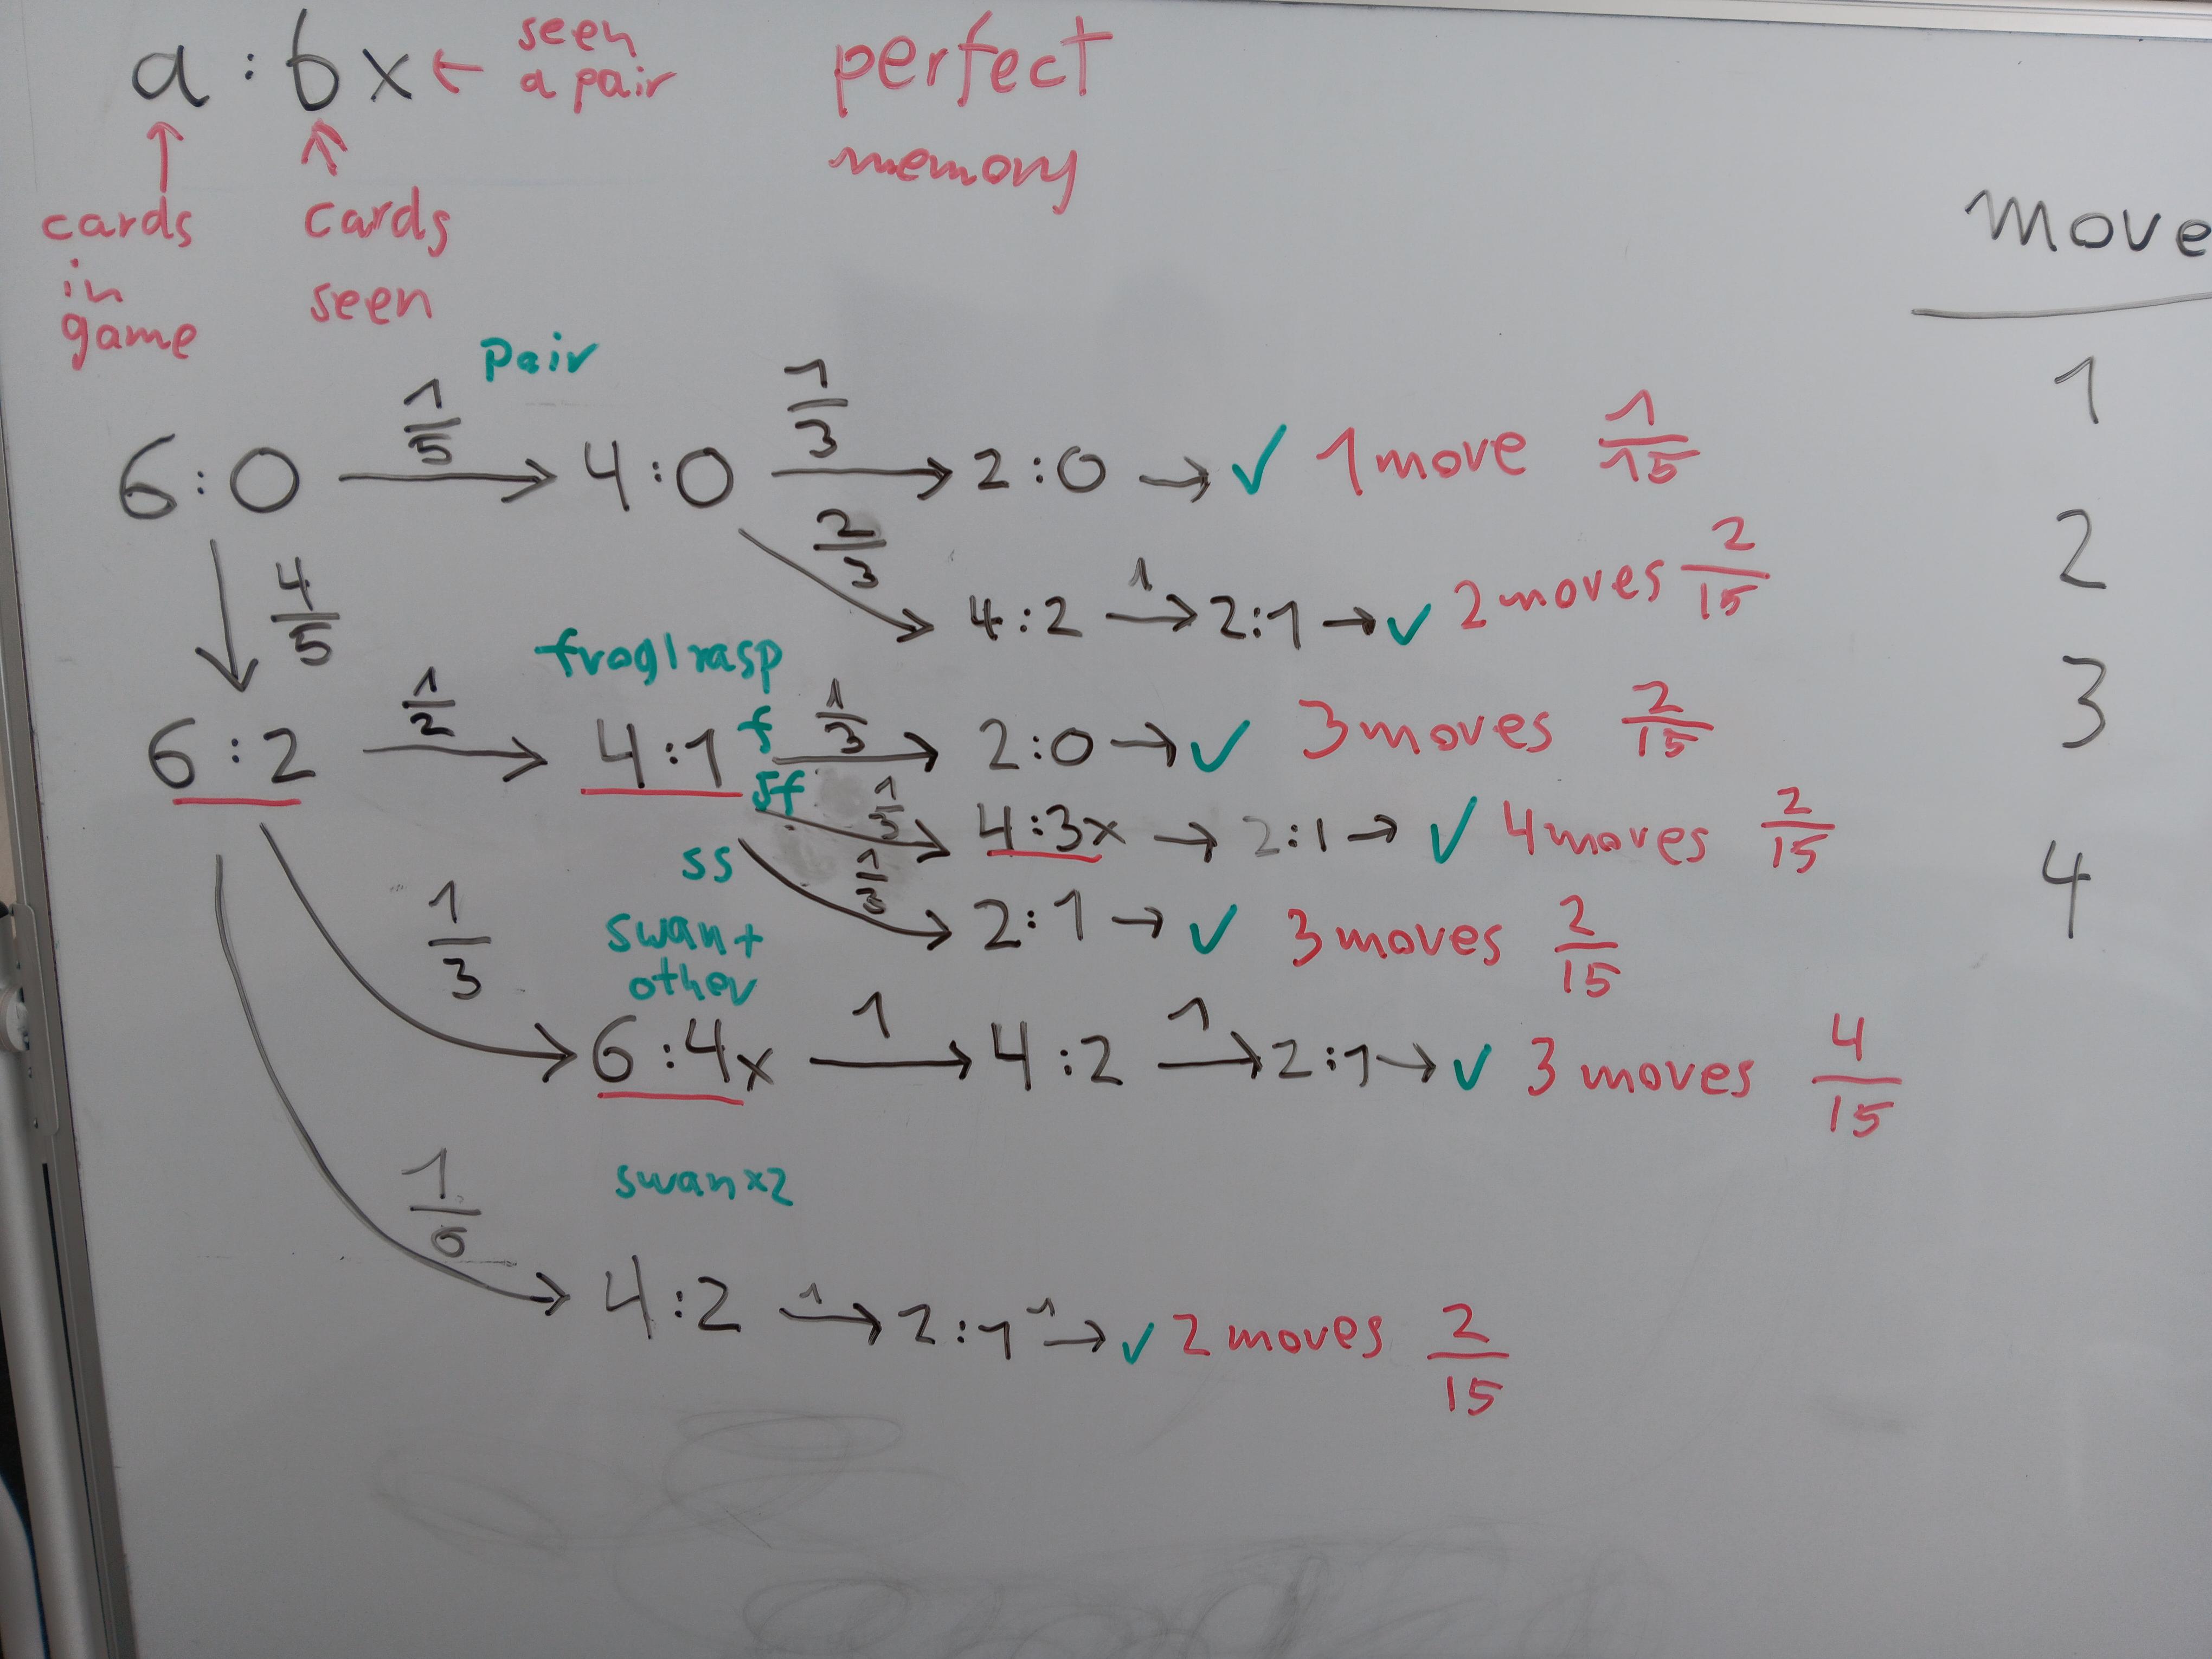 a : b x ← seen a pair
perfect memory
↑ cards in game
↑ cards seen
move
1
2
3
4
pair
6:0 → 1/5 4:0 → 1/3 2:0 → ✓ 1 move 1/15
2/3 4:2 → 1 2:1 → ✓ 2 moves 2/15
4/5
frog|rasp
6:2 → 1/2 4:1 f → 1/3 2:0 → ✓ 3 moves 2/15
sf 1/3 4:3x → 2:1 → ✓ 4 moves 2/15
ss 1/3 2:1 → ✓ 3 moves 2/15
swan + other
1/3 6:4x → 1 4:2 → 1 2:1 → ✓ 3 moves 4/15
swan x2
1/6 4:2 → 1 2:1 → 1 ✓ 2 moves 2/15